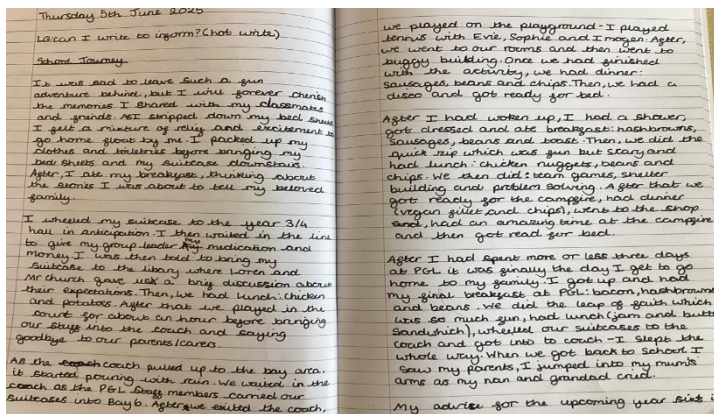 Thursday 5th June 2025
LO: can I write to inform? (hot write)
School Journey
It was sad to leave such a fun
adventure behind, but I will forever cherish
the memories I shared with my classmates
and freinds. As I stripped down my bed sheets
I felt a mixture of relief and excitement to
go home float by me. I packed up my
clothes and toiletries before bringing my
bed shetts and my suitcase downstairs.
After, I ate my breakfast, thinking about
the stories I was about to tell my beloved
family.
I wheeled my suitcase to the year 3/4
hall in anticipation. I then waited in the line
to give my group leader my medication and
money. I was then told to bring my
suitcase to the libary where Loren and
Mr Church gave us a brief discussion about
their expectations. Then, we had lunch: chicken
and potatos. After that we played in the
court for about an hour before bringing
our stuff into the coach and saying
goodbye to our parents/carers.
As the coach pulled up to the bay area,
it started pouring with rain. We waited in the
coach as the PGL staff members carried our
suitcases into Bay 6. After, we exited the coach,
we played on the playground - I played
tennis with Evie, Sophie and Imogen. After,
we went to our rooms and then went to
buggy building. Once we had finished
with the activity, we had dinner:
sausages, beans and chips. Then, we had a
disco and got ready for bed.
After I had woken up, I had a shower,
got dressed and ate breakfast: hashbrowns,
sausages, beans and toast. Then, we did the
quick zip which was fun but scary and
had lunch: chicken nuggets, beans and
chips. We then did: team games, shelter
building and problem solving. After that we
got ready for the campfire, had dinner
(vegan fillet and chips), went to the shop
and, had an amazing time at the campfire
and then got read for bed.
After I had spent more or less three days
at PGL it was finally the day I get to go
home to my family. I got up and had
my final breakfast at PGL: bacon, hashbrowns
and beans. We did the leap of faith which
was so much fun, had lunch (jam and butter
Sandwhich), wheeled our suitcases to the
coach and got into to coach - I slept the
whole way. When we got back to school I
saw my parents, I jumped into my mum's
arms as my nan and grandad cried.
My advice for the upcoming year